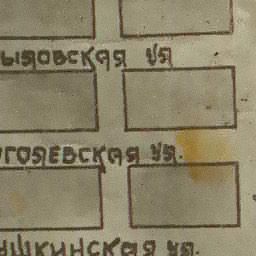 ыловская ул
голевская ул.
ышкинская ул.